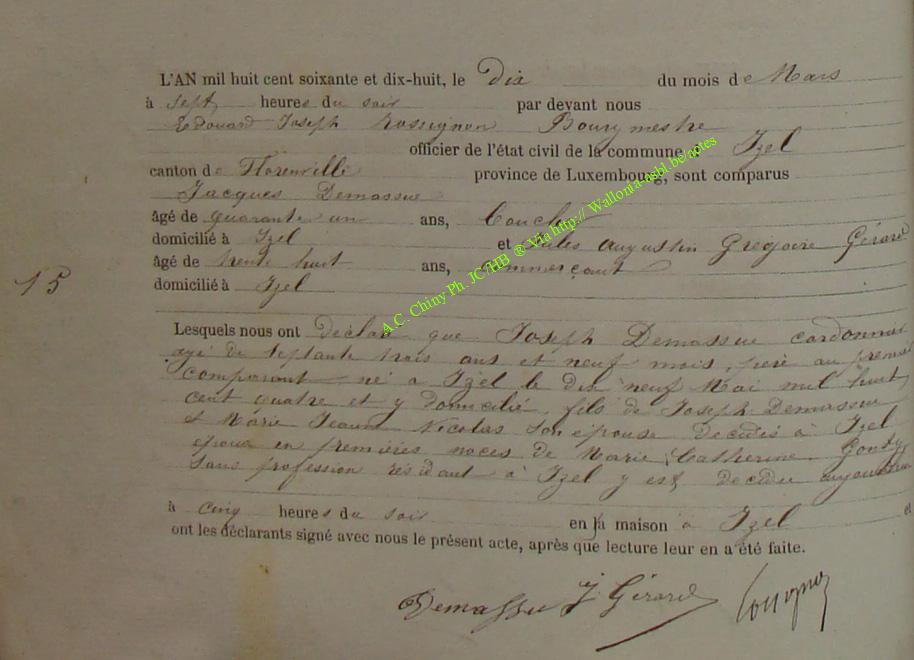 L'AN mil huit cent soixante et dix-huit, le Dix du mois de Mars
à sept heures du soir par devant nous
Edouard Joseph Rossignon Bourgmestre
officier de l'état civil de la commune Izel
canton de Florenville province de Luxembourg, sont comparus
Jacques Demassue
âgé de quarante un ans,
domicilié à Izel et Jules Augustin Grégoire Gérard
âgé de trente huit ans, commerçant
domicilié à Izel
15
Lesquels nous ont déclaré que Joseph Demassue cordonnier
agé de septante trois ans et neuf mois, père au premier
comparant né à Izel le dix neuf Mai mil huit
cent quatre et y domicilié, fils de Joseph Demassue
et Marie Jeanne Nicolas son épouse décédés à Izel
époux en premières noces de Marie Catherine
sans profession résidant à Izel y est décédé aujourd'hui
à cinq heures du soir en la maison à Izel et
ont les déclarants signé avec nous le présent acte, après que lecture leur en a été faite.
Demassue J Gérard Rossignon
A.C. Chiny Ph. JC HB ® Via http:// Wallonia-asbl.be/notes